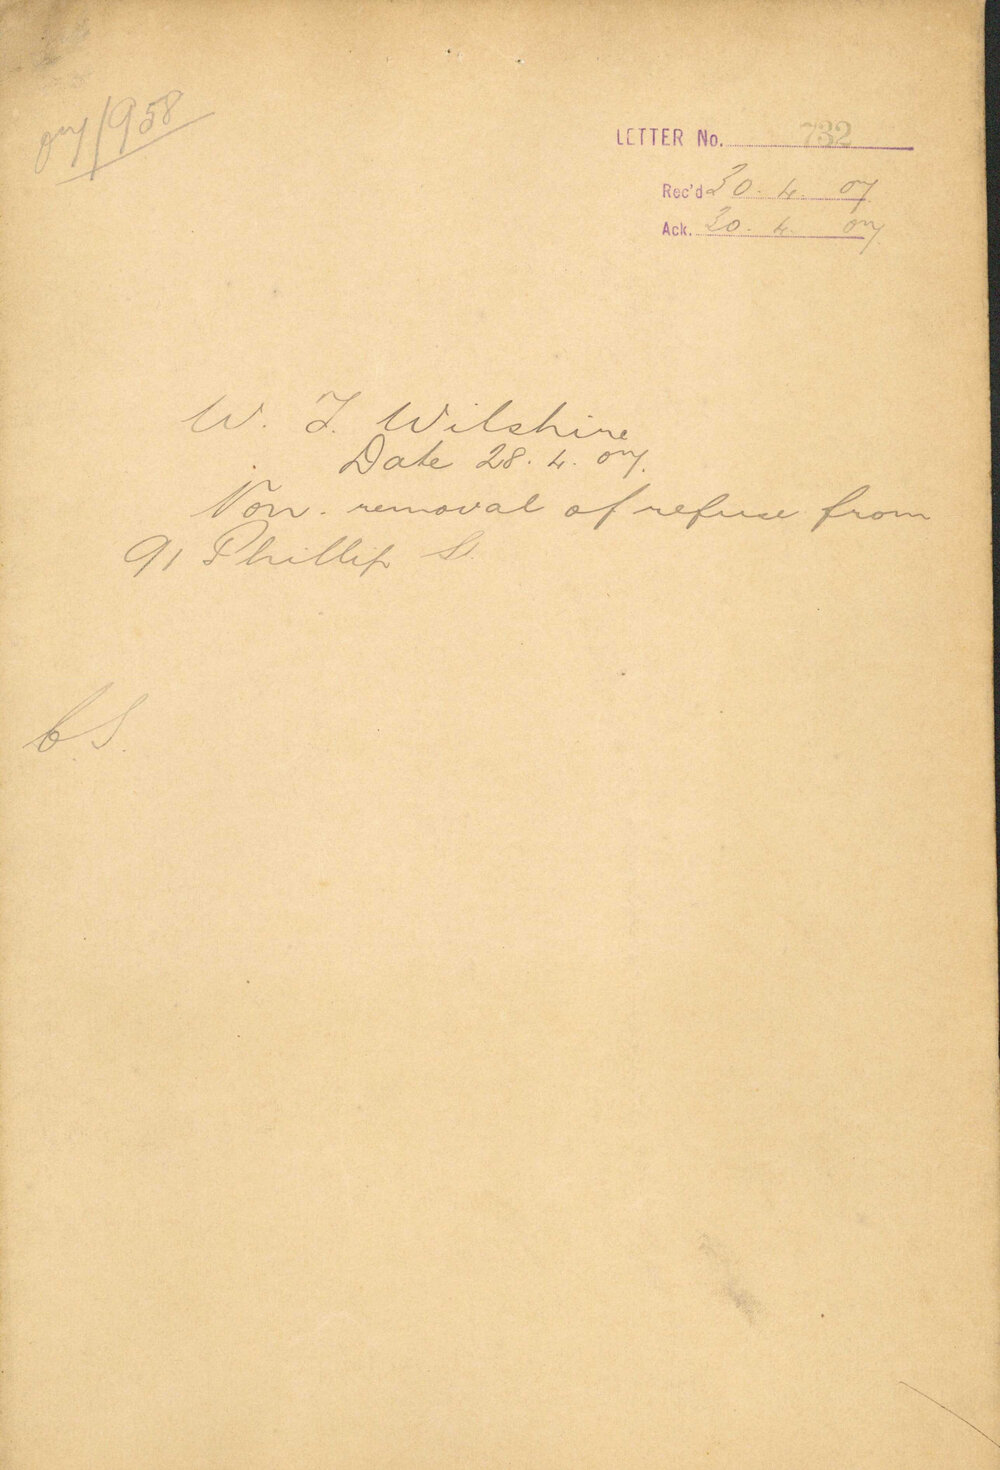 07/1958
LETTER No. 732
Rec'd 30. 4. 07
Ack. 30. 4. 07.
W. J. Wilshire
Date 28. 4. 07.
Non. removal of refuse from
91 Phillip S.
CS.